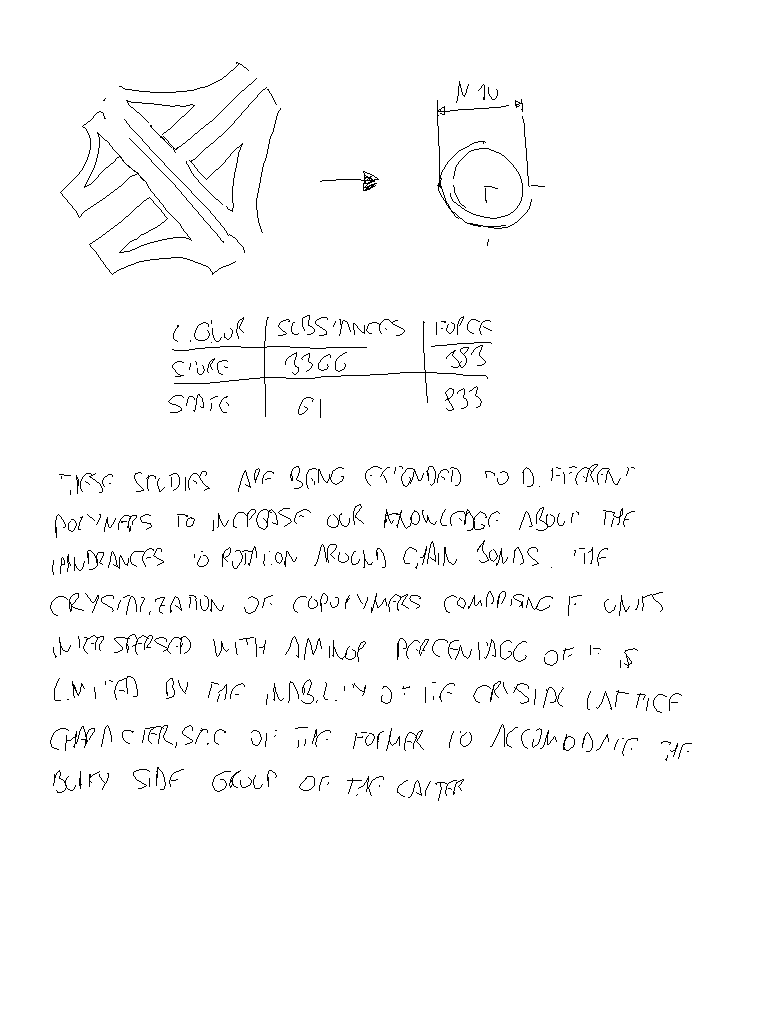 M10
COLOUR SUBSTANCES FORCE
STORE 3366 383
STATE 61 833
THESE STUDIES ARE BEING EXTENDED TO DIFFERENT
POLYMERS TO INCREASE OUR KNOWLEDGE ABOUT THE
HINDRANCES TO ROTATION AROUND CHAIN BONDS. THE
CRYSTALIZATION OF COPOLYMERS COMPRISING F UNITS
INTERSPERSED WITH A MINOR PERCENTAGE OF IS
LIMITED BY THE INABILITY OF THE CRYSTAL LATTICE
CHARACTERISTIC OF THE FORMER TO ACCOMODATE THE
BULKY SIDE GROUP OF THE LATTER